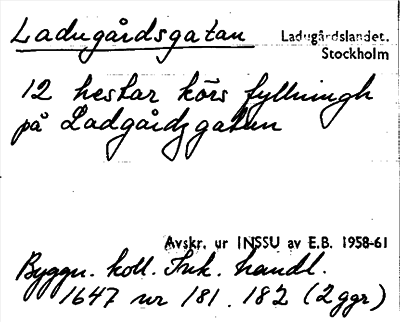 Ladugårdsgatan
Ladugårdslandet.
Stockholm
12 hestar körs fyllningh
på Ladgårdzgatun
Avskr. ur INSSU av E.B. 1958-61
Byggn. koll. Ink. handl.
1647 nr 181. 182 (2 ggr)